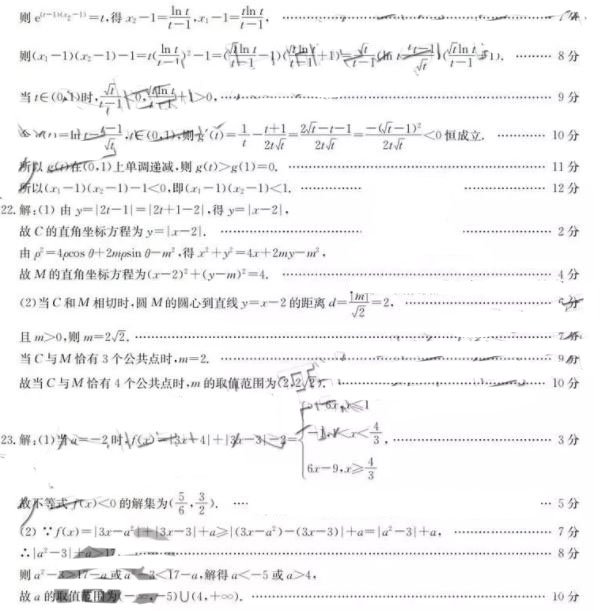 则 e^{(t-1)(x₂-1)}=t,得 x₂-1=\frac{ln t}{t-1},x₁-1=\frac{tln t}{t-1},
则(x₁-1)(x₂-1)-1=t(\frac{ln t}{t-1})²-1= ……… 8分
当 t∈(0,1)时, >0, ……… 9分
=\frac{1}{t}-\frac{t+1}{2t√t}=\frac{2√t-t-1}{2t√t}=\frac{-(√t-1)²}{2t√t}<0 恒成立. ……… 10分
所以 g(t)在(0,1)上单调递减,则 g(t)>g(1)=0. ……… 11分
所以(x₁-1)(x₂-1)-1<0,即(x₁-1)(x₂-1)<1. ……… 12分
22.解:(1) 由 y=|2t-1|=|2t+1-2|,得 y=|x-2|,
故 C 的直角坐标方程为 y=|x-2|. ……… 2分
由 ρ²=4ρcos θ+2mρsin θ-m²,得 x²+y²=4x+2my-m²,
故 M 的直角坐标方程为(x-2)²+(y-m)²=4. ……… 4分
(2)当 C 和 M 相切时,圆 M 的圆心到直线 y=x-2 的距离 d=\frac{|m|}{√2}=2, ………
且 m>0,则 m=2√2. ……… 7分
当 C 与 M 恰有 3 个公共点时,m=2. ……… 9分
故当 C 与 M 恰有 4 个公共点时,m 的取值范围为(2,2√2). ……… 10分
23.解:(1)当 a=-2 时,f(x)=|3x+4|+|3x-3|-2= , ……… 3分
6x-9,x≥\frac{4}{3}
故不等式 f(x)<0 的解集为(\frac{5}{6},\frac{3}{2}). ……… 5分
(2) ∵f(x)=|3x-a²|+|3x-3|+a≥|(3x-a²)-(3x-3)|+a=|a²-3|+a, ……… 7分
∴|a²-3|+a>17. ……… 8分
则 a²-3>17-a 或 a²-3<17-a,解得 a<-5 或 a>4,
故 a 的取值范围为(-∞,-5)∪(4,+∞). ……… 10分